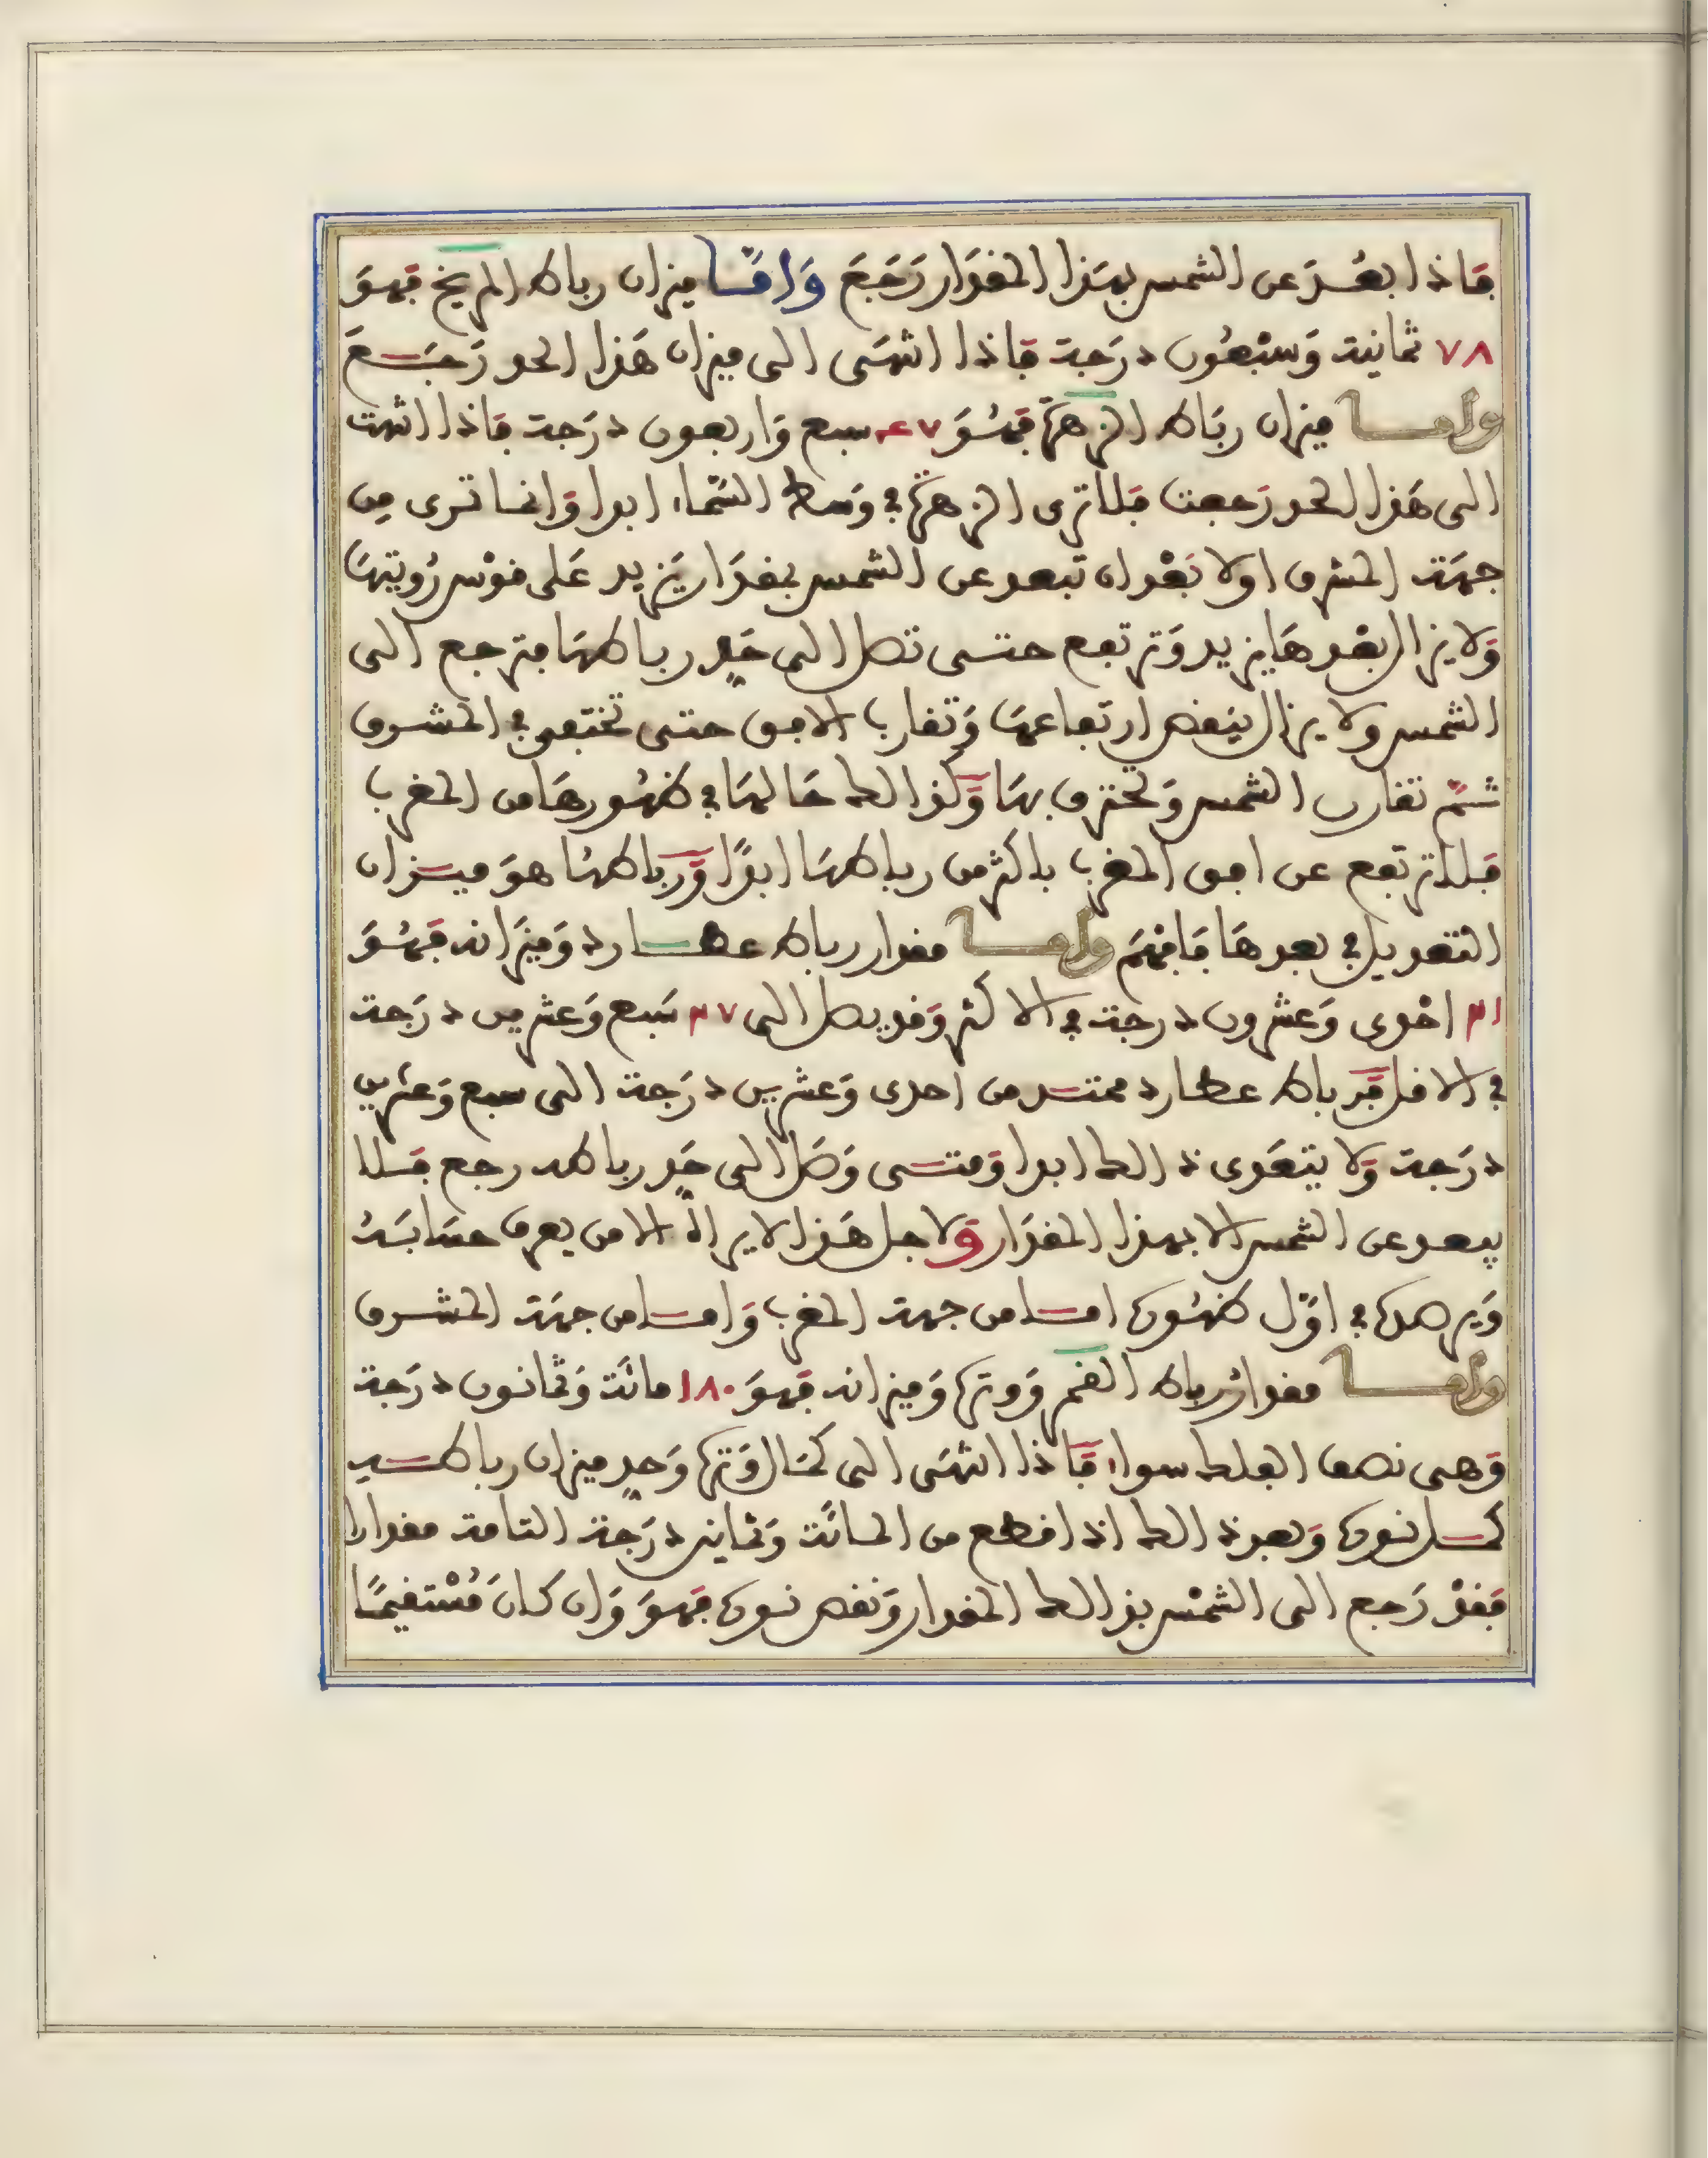 فاذا بعُد عن الشمس بهذا المقدار رَجَعَ وَامّا ميزان رباط المريخ فهوَ
٧٨ ثمانية وَسبْعُون درَجة فاذا انتهَى الى ميزان هَذا الحد رَجَعَ
واما ميزان ربَاط الزهرَة فهُوَ ٤٧ سبع وَاربعون درَجة فاذا انتهت
الى هَذا الحد رَجعت فلا ترى الزهرَة في وَسط السّماء ابدا وَانما ترى مِن
جهَة المشرق اولا بَعْد ان تبعد عن الشمس بمقدَار يَزيد عَلى قوْس رُويتهَا
وَلا يزال بعْدهَا يزيد وَترتفع حتى تصل الى حَدِّ رباطهَا فترجع الى
الشمس ولا يزال ينقص ارتفاعهَا وَتقارب الافق حتى تختفي في المشرق
ثمّ تقارب الشمس وَتحترق بهَا وَكذالك حَالهَا في ظهُورهَا من المغرب
فَلا ترتفع عن افق المغرب باكثر من رباطهَا ابدًا وَرباطهَا هوَ ميزان
التعديل في بعدهَا فَافهَم واما مقدار رباط عطارد وَميزَانه فهُوَ
٢١ احْدى وَعشرون درجة في الاكثر وَقد يصل الى ٢٧ سَبع وَعشرين درَجة
في الاقل فَرباط عطارد ممتد من احدى وَعشرين درَجة الى سبع وَعشرين
درَجة وَلا يتعَدى ذالك ابدا وَمتى وَصَل الى حَدِّ رباطه رجع فَلا
يبعد عن الشمس الا بهذا المقدَار وَلاجل هَذا لا يراهُ الا من يعرف حسَابَهُ
وَيرصدُه في اوّل ظهُوره اما من جهة المغرب وَاما من جهَة المشرق
واما مقدارُ رباط القمر وَوتره وَميزانه فهوَ ١٨٠ مائَة وَثمانون درَجة
وَهى نصف الفلك سواء فَاذا انتهَى الى كمَال وَتره وَحدِّ ميزان رباطه
كمل نوره وَبعد ذالك اذا قطع من المائَة وَثمانين درَجة التامة مقدارا
فَقدْ رَجع الى الشمْس بذالك المقدار وَنقص نوره فهوَ وَان كَانَ مُسْتقيمًا